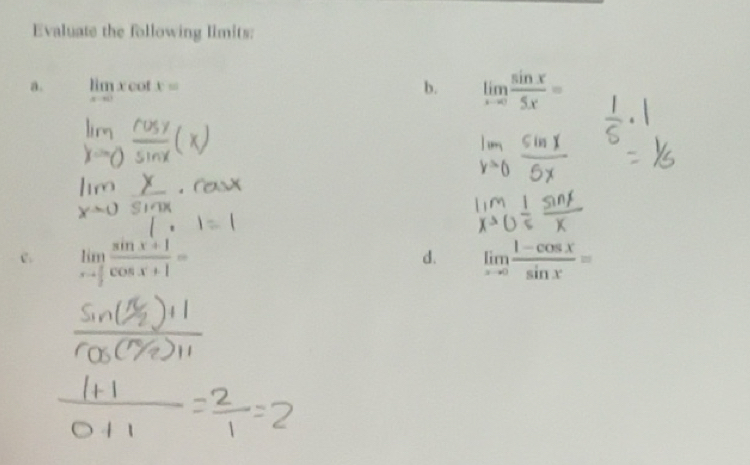 Evaluate the following limits:
a. lim x→0 x cot x =
lim x→0 cosx/sinx (x)
lim x→0 x/sinx · cosx
1 · 1 = 1
b. lim x→0 sin x/5x =
1/5 · 1
= 1/5
lim x→0 sin x/5x
lim x→0 1/5 sinx/x
c. lim x→π/2 sin x + 1/cos x + 1 =
sin(π/2)+1/cos(π/2)+1
1+1/0+1 = 2/1 = 2
d. lim x→0 1 − cos x/sin x =